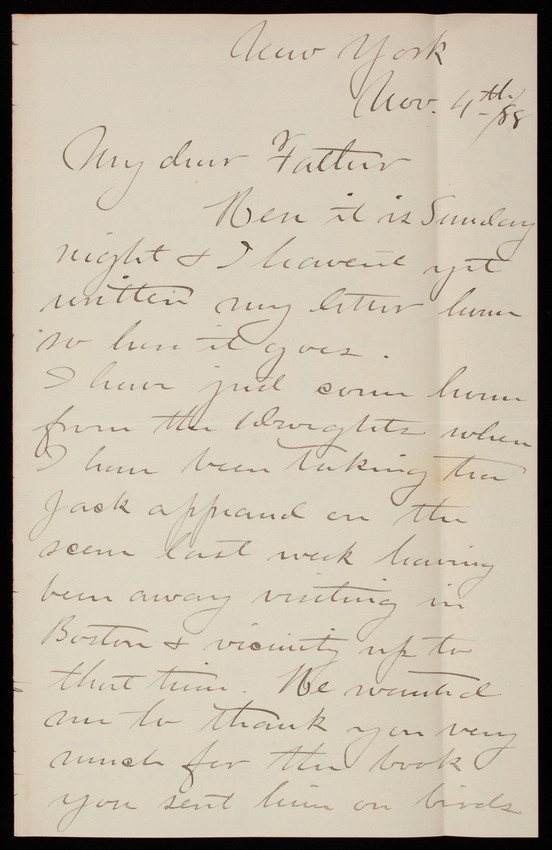 New York
Nov. 4th/88
My dear Father
Here it is Sunday
night & I havent yet
written my letter home
so here it goes.
I have just come home
from the Dwights where
I have been taking tea
Jack appeared on the
scene last week having
been away visiting in
Boston & vicinity up to
that time. He wanted
me to thank you very
much for the book
you sent him on birds